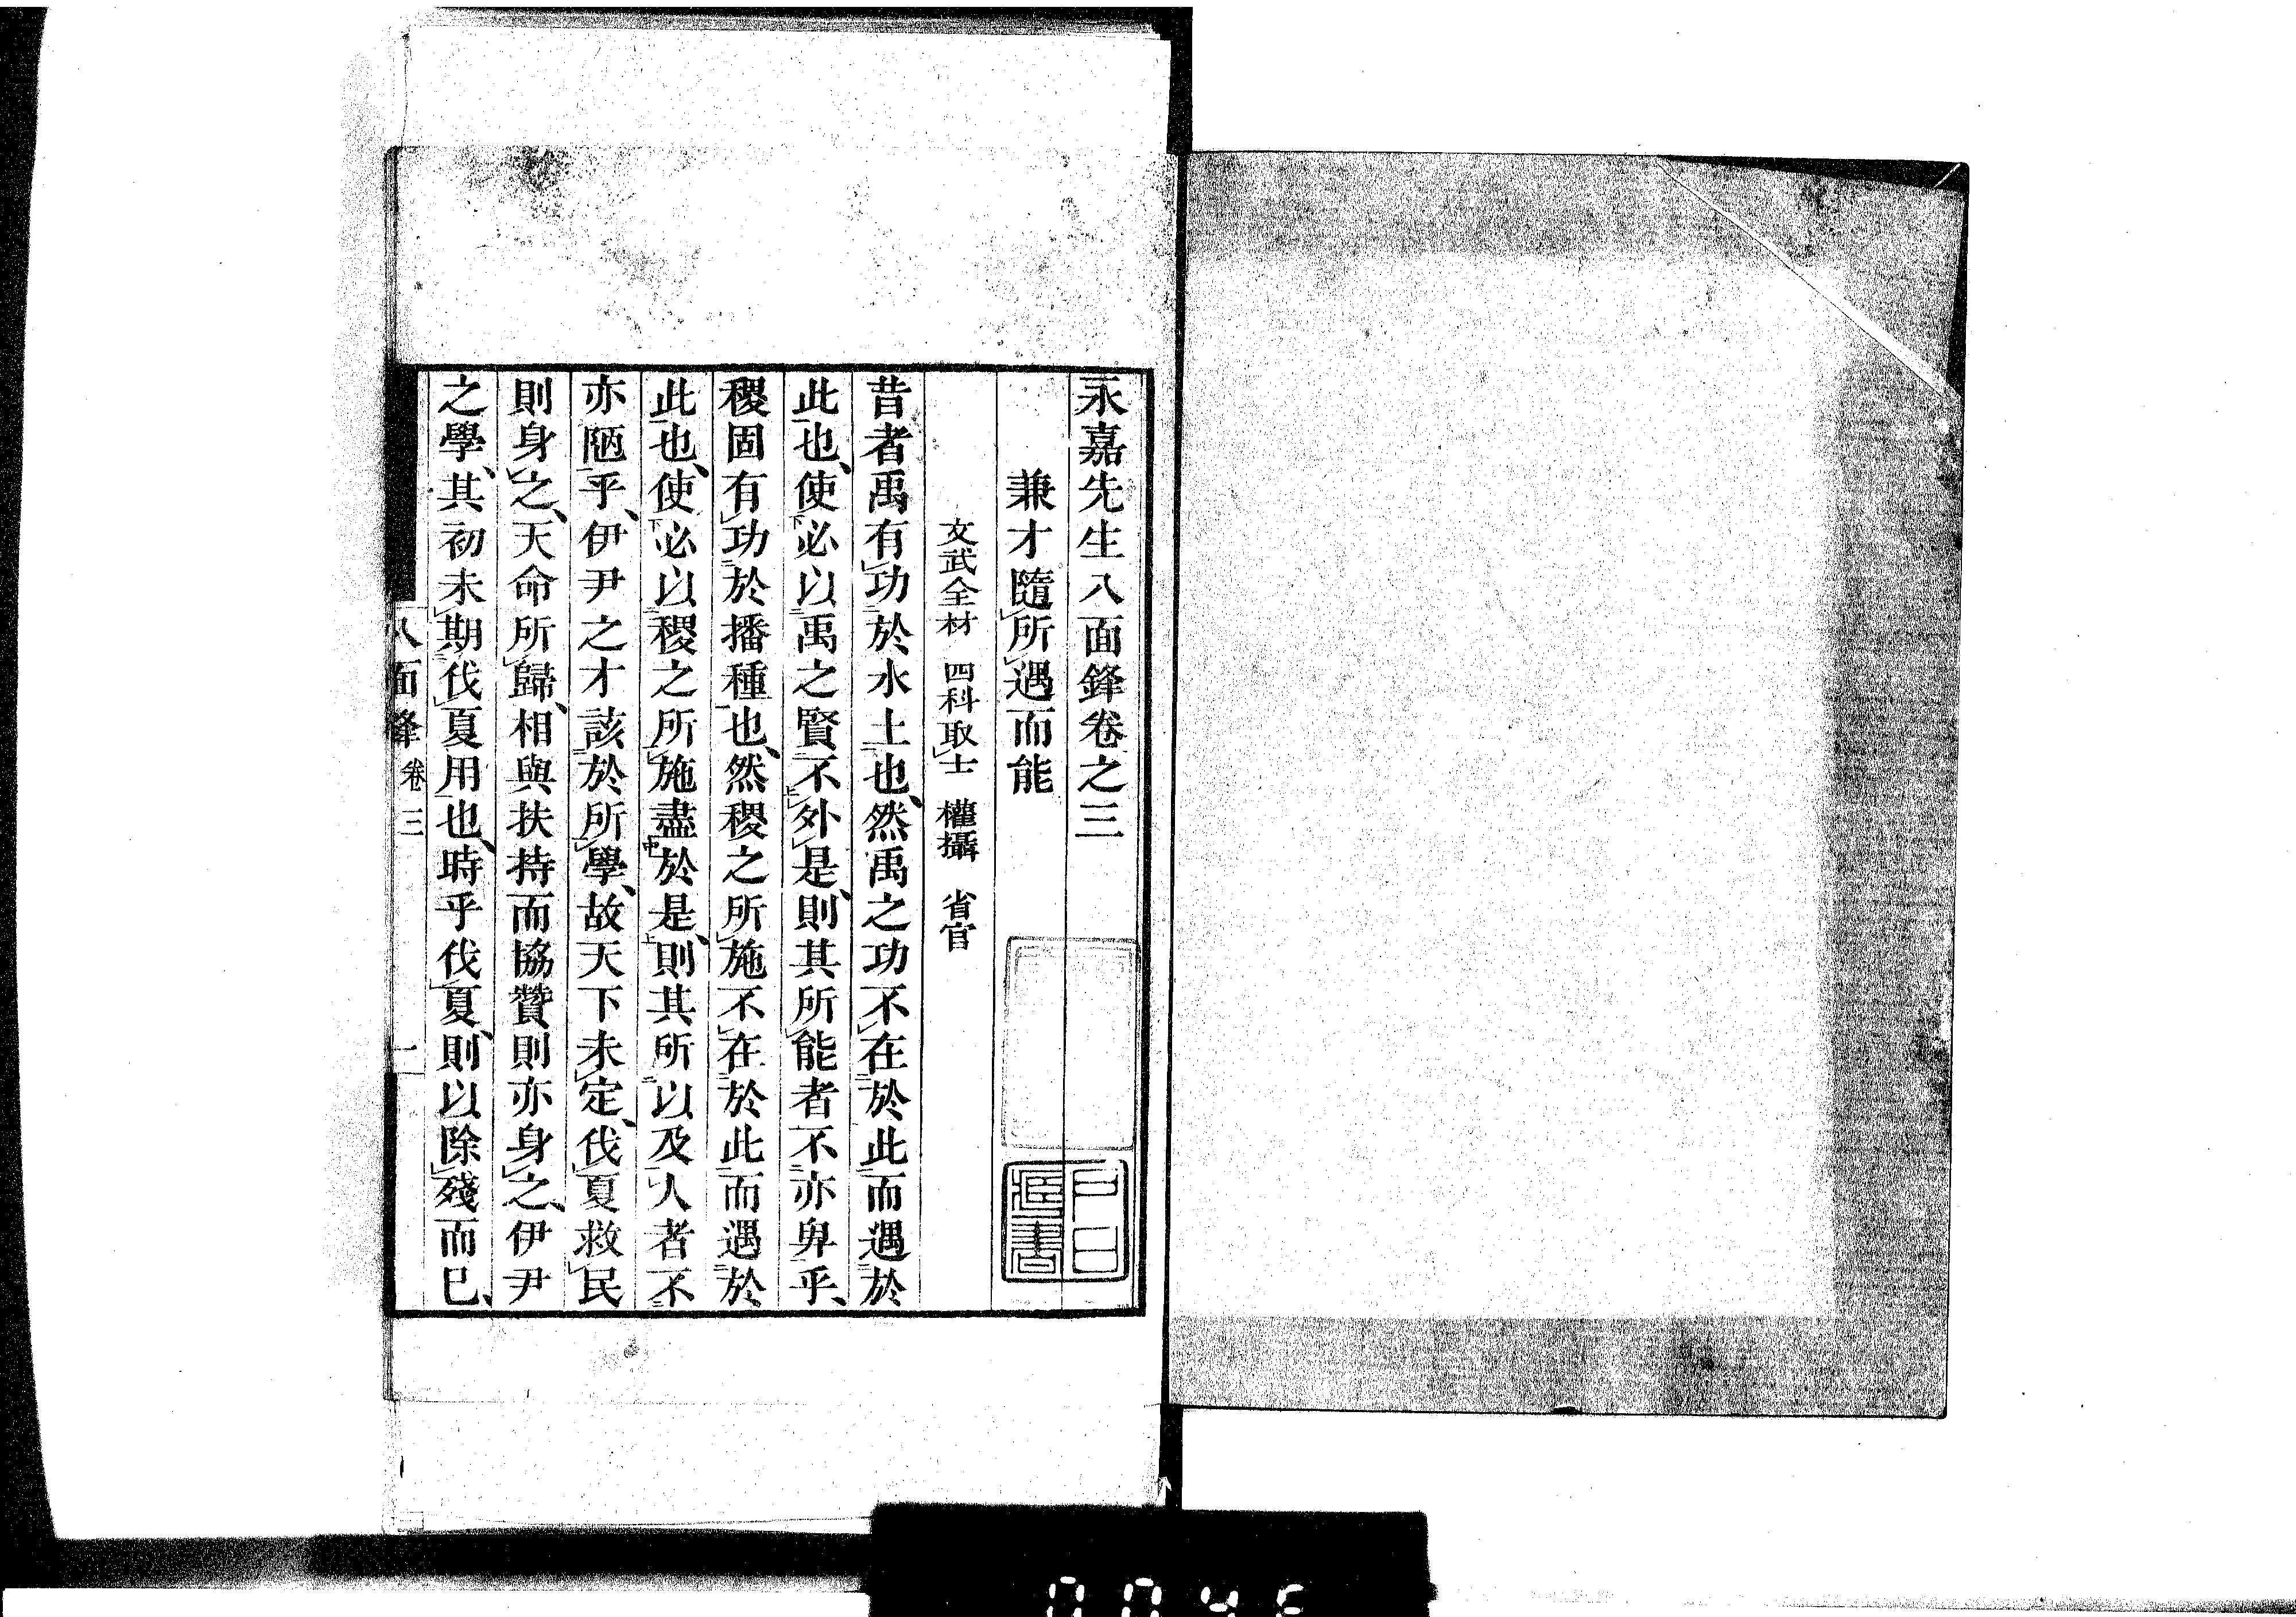 永嘉先生八面鋒卷之三
兼才隨所遇而能
文武全材 四科取士 權攝 省官
昔者禹有功於水土也然禹之功不在於此而遇於
此也使必以禹之賢不外是則其所能者不亦卑乎
稷固有功於播種也然稷之所施不在於此而遇於
此也使必以稷之所施盡於是則其所以及人者不
亦陋乎伊尹之才該於所學故天下未定伐夏救民
則身之天命所歸相與扶持而協贊則亦身之伊尹
之學其初未期伐夏用也時乎伐夏則以除殘而已
八面鋒 卷三 一